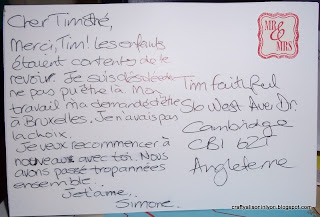 Cher Timothé,
Merci, Tim! Les enfants
étaient contents de le
revoir. Je suis désolée de
ne pas pu être là. Mon
travail m'a demandé d'être
à Bruxelles. Je n'avais pas
la choix.
Je veux recommencer à
nouveau avec toi. Nous
avons passé trop années
ensemble...
Je t'aime.
Simone.
MR
&
MRS
Tim Faithful
56 West Ave Dr.
Cambridge
CB1 6ZT
Angleterre
craftyallisoninlyon.blogspot.com